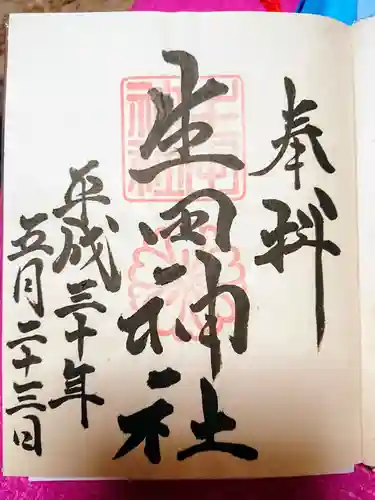 奉拝
生田神社
平成三十年
五月二十三日
生田神社